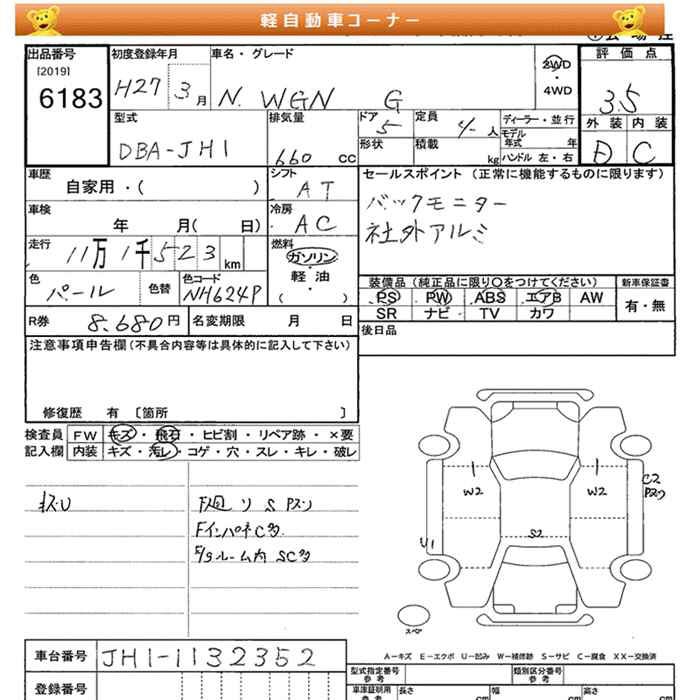 軽自動車コーナー
出品番号
[2019]
6183
初度登録年月
H27 3月
車名・グレード
N. WGN G
2WD
・
4WD
評価点
3.5
外装 内装
D C
型式
DBA-JH1
排気量
660 cc
ドア
5
定員
4 人
形状
積載
kg
ディーラー・並行
モデル年式 年
ハンドル 左・右
車歴
自家用・( )
シフト
AT
車検
年 月( 日)
冷房
AC
走行
11万1千523 km
燃料
ガソリン
・
軽・油
( )
色
パール
色替
色コード
NH624P
R券 8.680円
名変期限 月 日
セールスポイント(正常に機能するものに限ります)
バックモニター
社外アルミ
装備品(純正品に限り〇をつけてください)
PS PW ABS エアB AW
SR ナビ TV カワ
新車保証書
有・無
後日品
注意事項申告欄(不具合内容等は具体的に記入して下さい)
修復歴 有 〔箇所 〕
検査員 FW キズ・飛石・ヒビ割・リペア跡・×要
記入欄 内装 キズ・汚レ・コゲ・穴・スレ・キレ・破レ
F廻リ S
FインパネC多
ルーム内 SC多
W2
W2
C2
U1
S2
スペア
A－キズ E－エクボ U－凹み W－補修跡 S－サビ C－腐食 XX－交換済
車台番号 JH1-1132352
登録番号
型式指定番号
参考
類別区分番号
参考
車庫証明用
参考
長さ cm
幅 cm
高さ cm